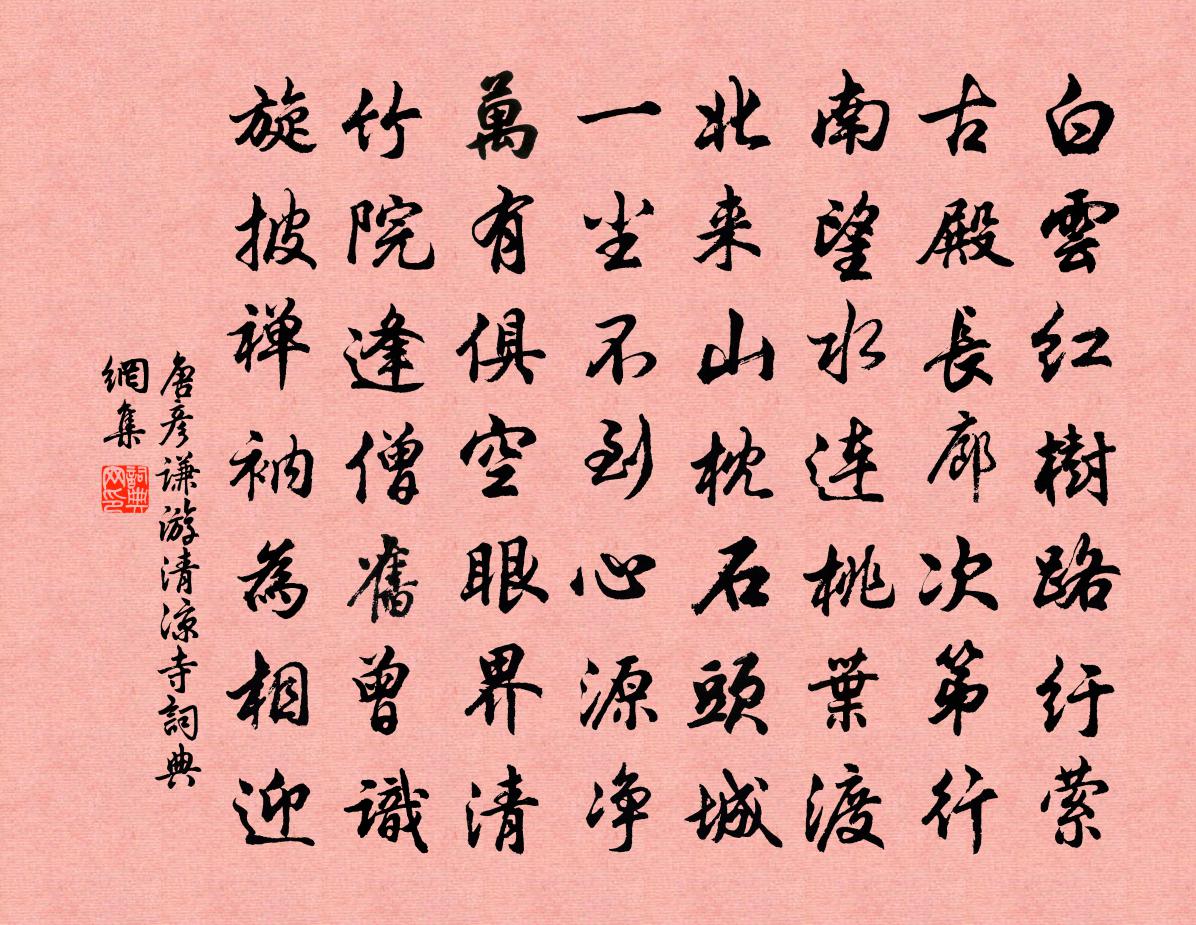 白雲紅樹路紆萦
古殿長廊次第行
南望水连桃葉渡
北来山枕石頭城
一尘不到心源净
萬有俱空眼界清
竹院逢僧舊曾識
旋披禅衲為相迎
唐彦谦游清凉寺詞典
網集
詞典
网印